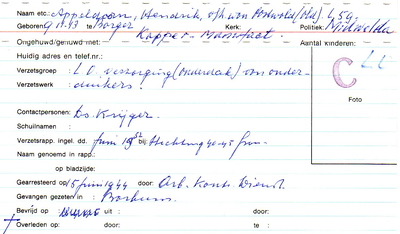 Naam etc.: Appeldoorn, Hendrik,
Geboren: 9 11 '13 te Borger Kerk: Politiek: Midwolda
Ongehuwd/gehuwd met: Kapper- Aantal kinderen:
Huidig adres en telef.nr.:
Verzetsgroep : L.O. verzorging (onderdak) van onder-
Verzetswerk : duikers.
C LL
Foto
Contactpersonen: ds. Krijger.
Schuilnamen :
Verzetsrapp. ingel. dd. juni 1952 bij: Stichting 40-45
Naam genoemd in rapp.:
op bladzijde:
Gearresteerd op: 15 juni 1944 door: Arb. Kont. Dienst.
Gevangen gezeten in : Borkum.
Bevrijd op : uit : door:
Overleden op: door: te :